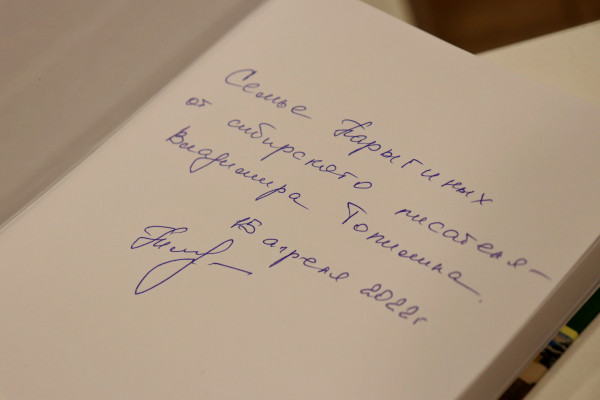 Семье Карыгиных
от сибирского писателя-
Владимира Топилина.
15 апреля 2022г